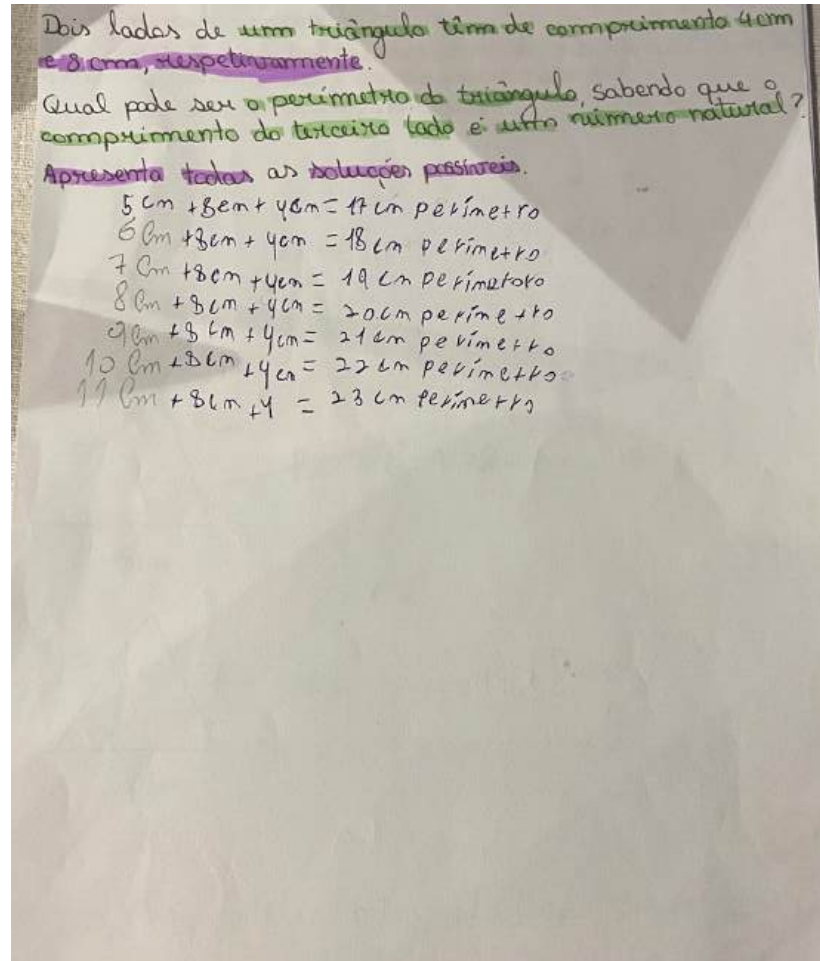 Dois lados de um triângulo têm de comprimento 4cm
e 8 cm, respetivamente.
Qual pode ser o perímetro do triângulo, sabendo que o
comprimento do terceiro lado é um número natural?
Apresenta todas as soluções possíveis.
5 cm + 8cm + 4cm = 17 cm perímetro
6 cm + 8cm + 4cm = 18 cm perímetro
7 cm + 8cm + 4cm = 19 cm perímetro
8 cm + 8cm + 4cm = 20cm perímetro
9 cm + 8 cm + 4cm = 21 cm perímetro
10 cm + 8cm + 4cm = 22 cm perímetro
11 cm + 8cm + 4 = 23 cm perímetro